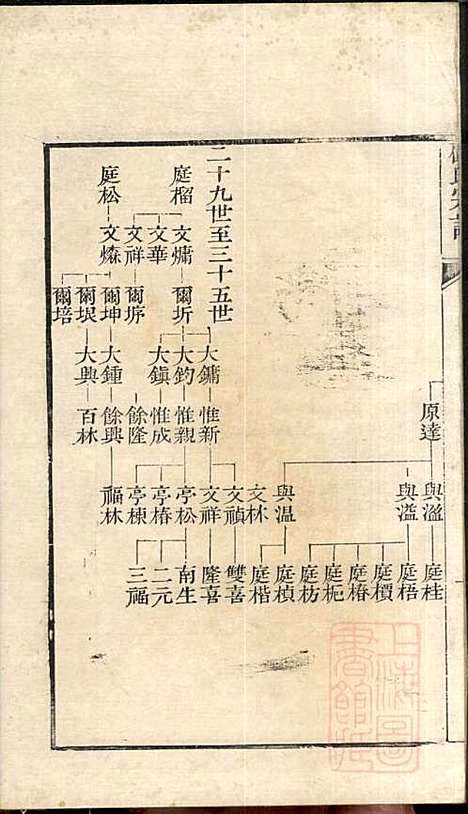 氏宗譜
原達
與溋
與溢
與温
庭桂
庭梧
庭檟
庭椿
庭杞
庭枋
庭楨
庭楷
二十九世至三十五世
庭榴
庭松
文煒
文華
文祥
文燊
爾圻
爾坤
爾埙
爾培
大鏞
大鈞
大鎮
大鍾
大興
惟新
惟親
惟成
餘隆
餘興
百林
文林
文禎
文祥
亭松
亭椿
亭棟
福林
雙喜
隆喜
南生
二元
三福
上海圖書館藏